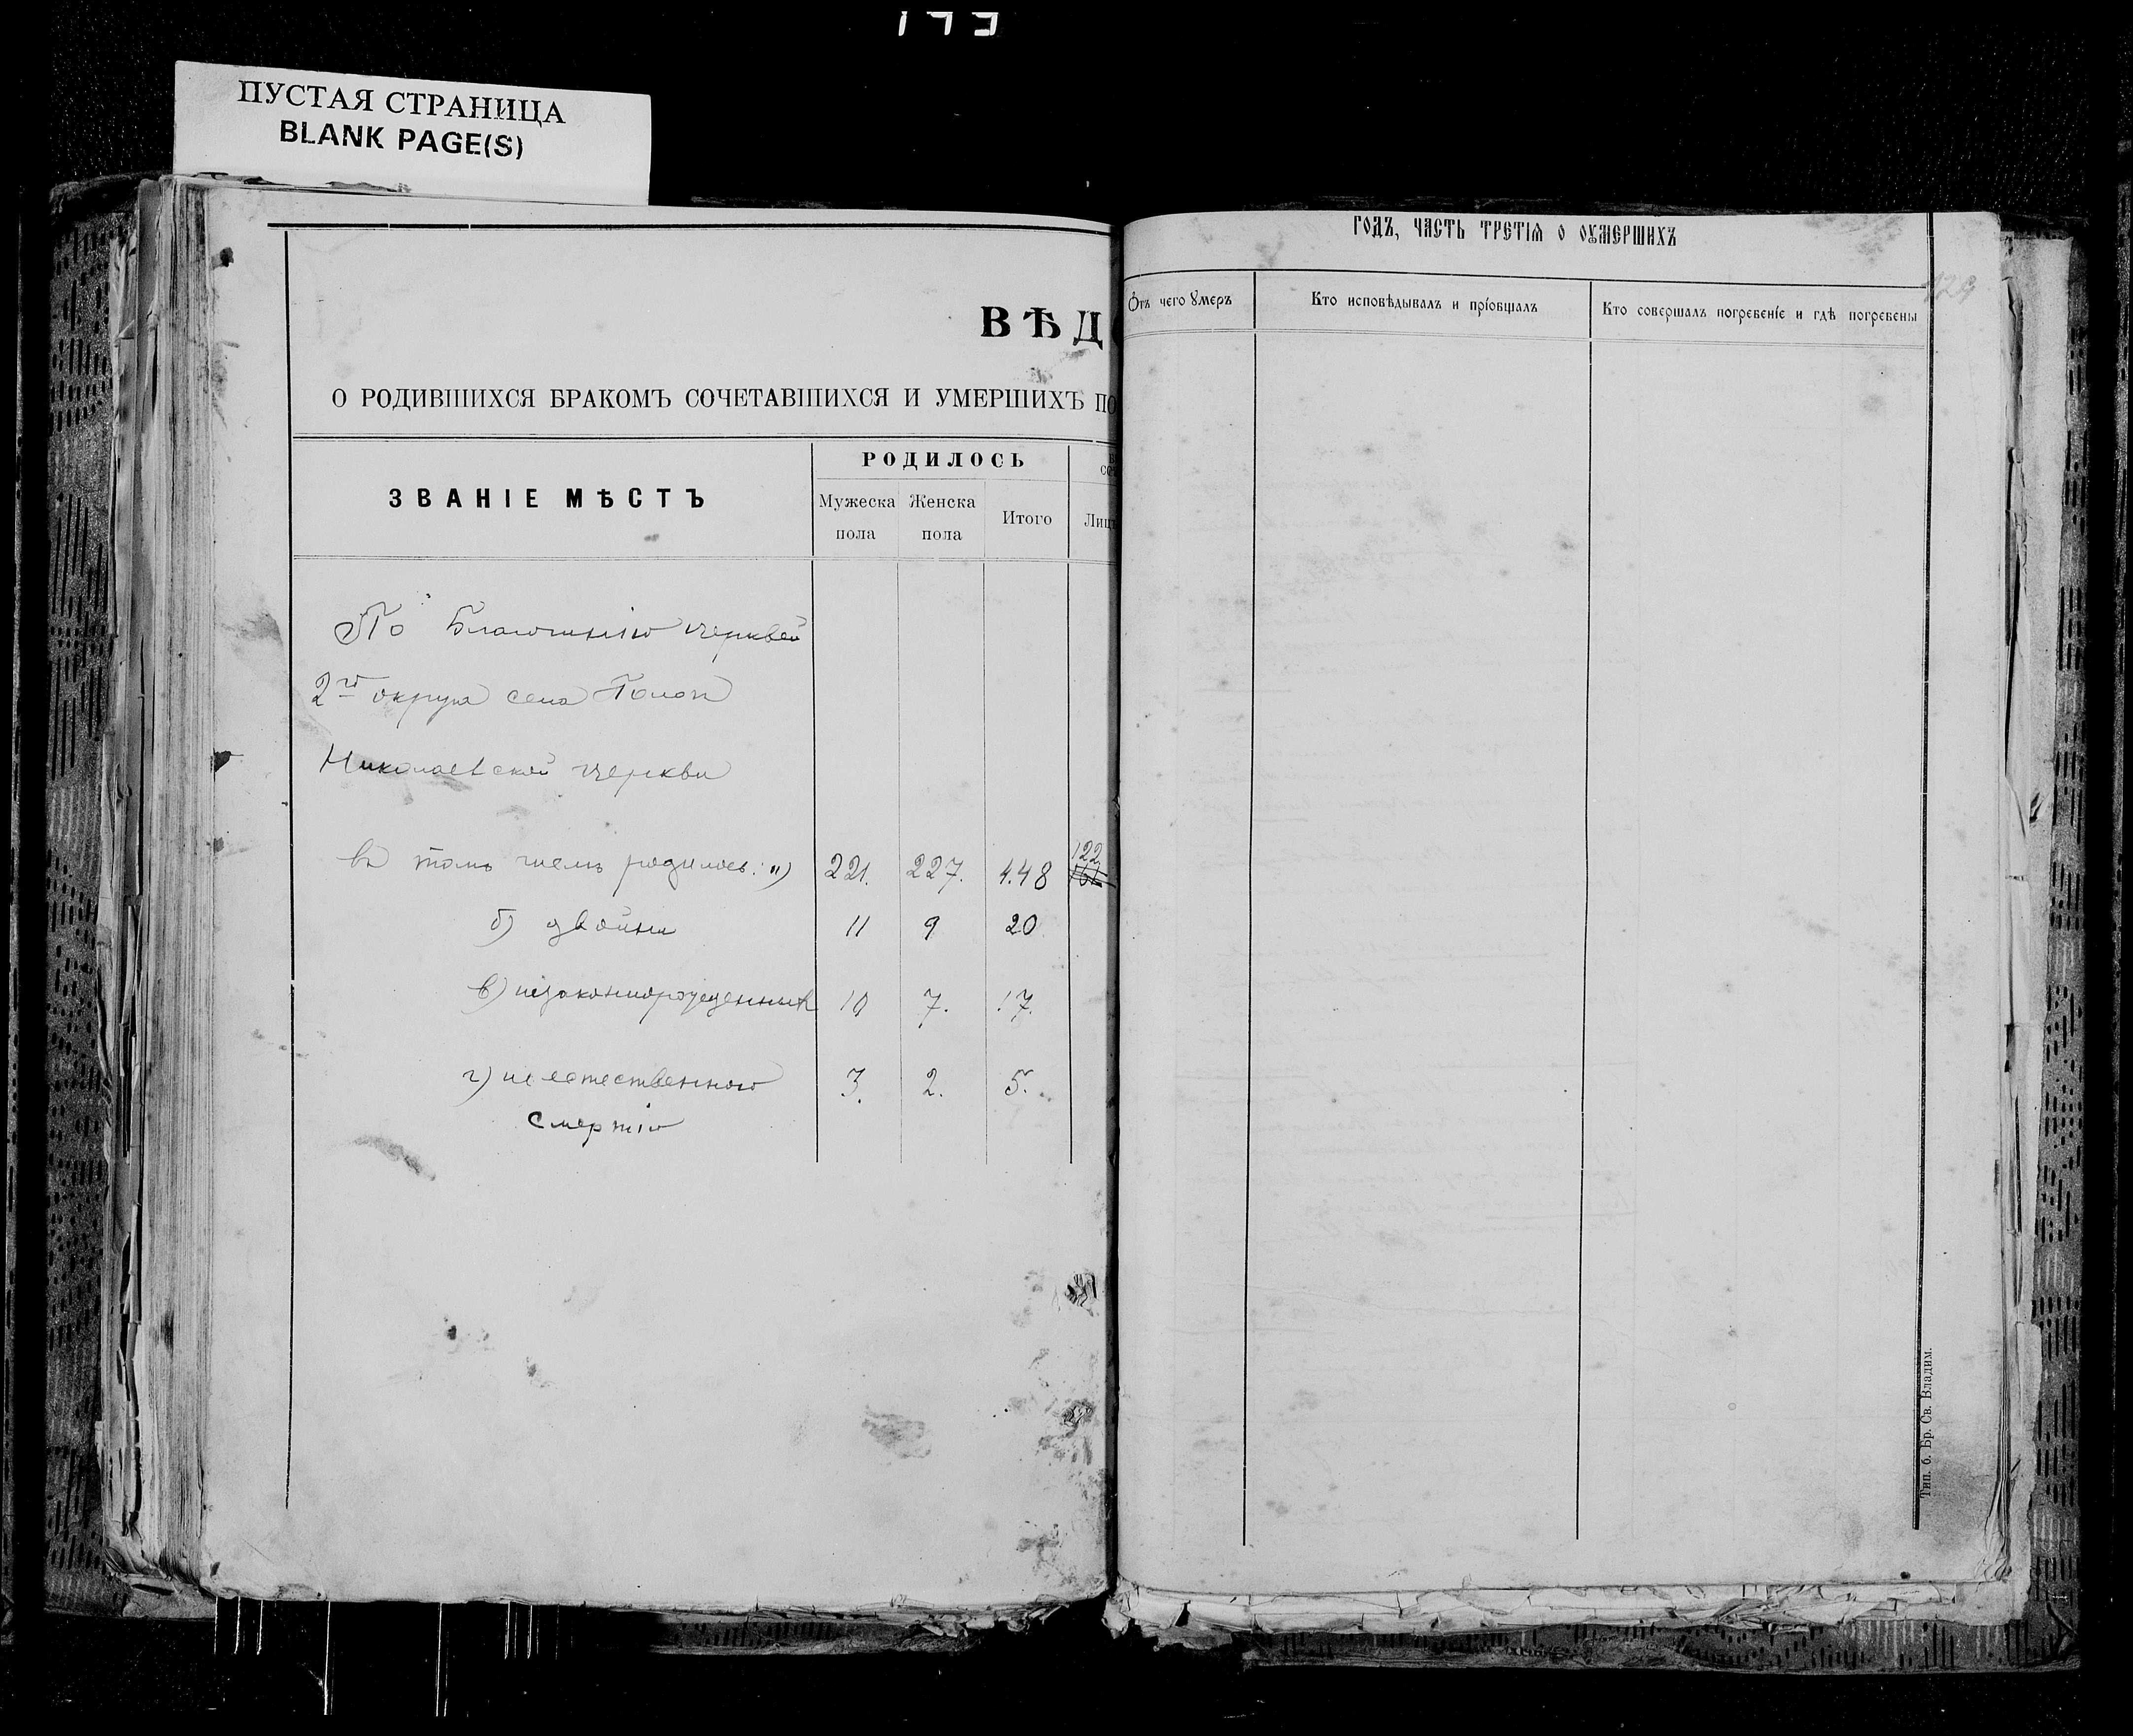 173
ПУСТАЯ СТРАНИЦА
BLANK PAGE(S)
ВѢДО
О РОДИВШИХСЯ БРАКОМЪ СОЧЕТАВШИХСЯ И УМЕРШИХЪ ПО
ЗВАНІЕ МѢСТЪ
РОДИЛОСЬ
Мужеска пола
Женска пола
Итого
Лиц
По Благочинію церквей
2го округа села
Николаевской церкви
въ томъ числѣ родилось: а) 221. 227. 448 122
б) двойни 11 9 20
в) незаконнорожденныхъ 10 7. 17.
г) неестественною 3. 2. 5.
смертію
ГОДЪ, ЧАСТЬ ТРЕТІѦ О ОУМЕРШИХЪ
129
Ѿтъ чего Умеръ
Кто исповѣдывалъ и пріобщалъ
Кто совершалъ погребеніе и гдѣ погребены
Тип. б. Бр. Св. Владим.